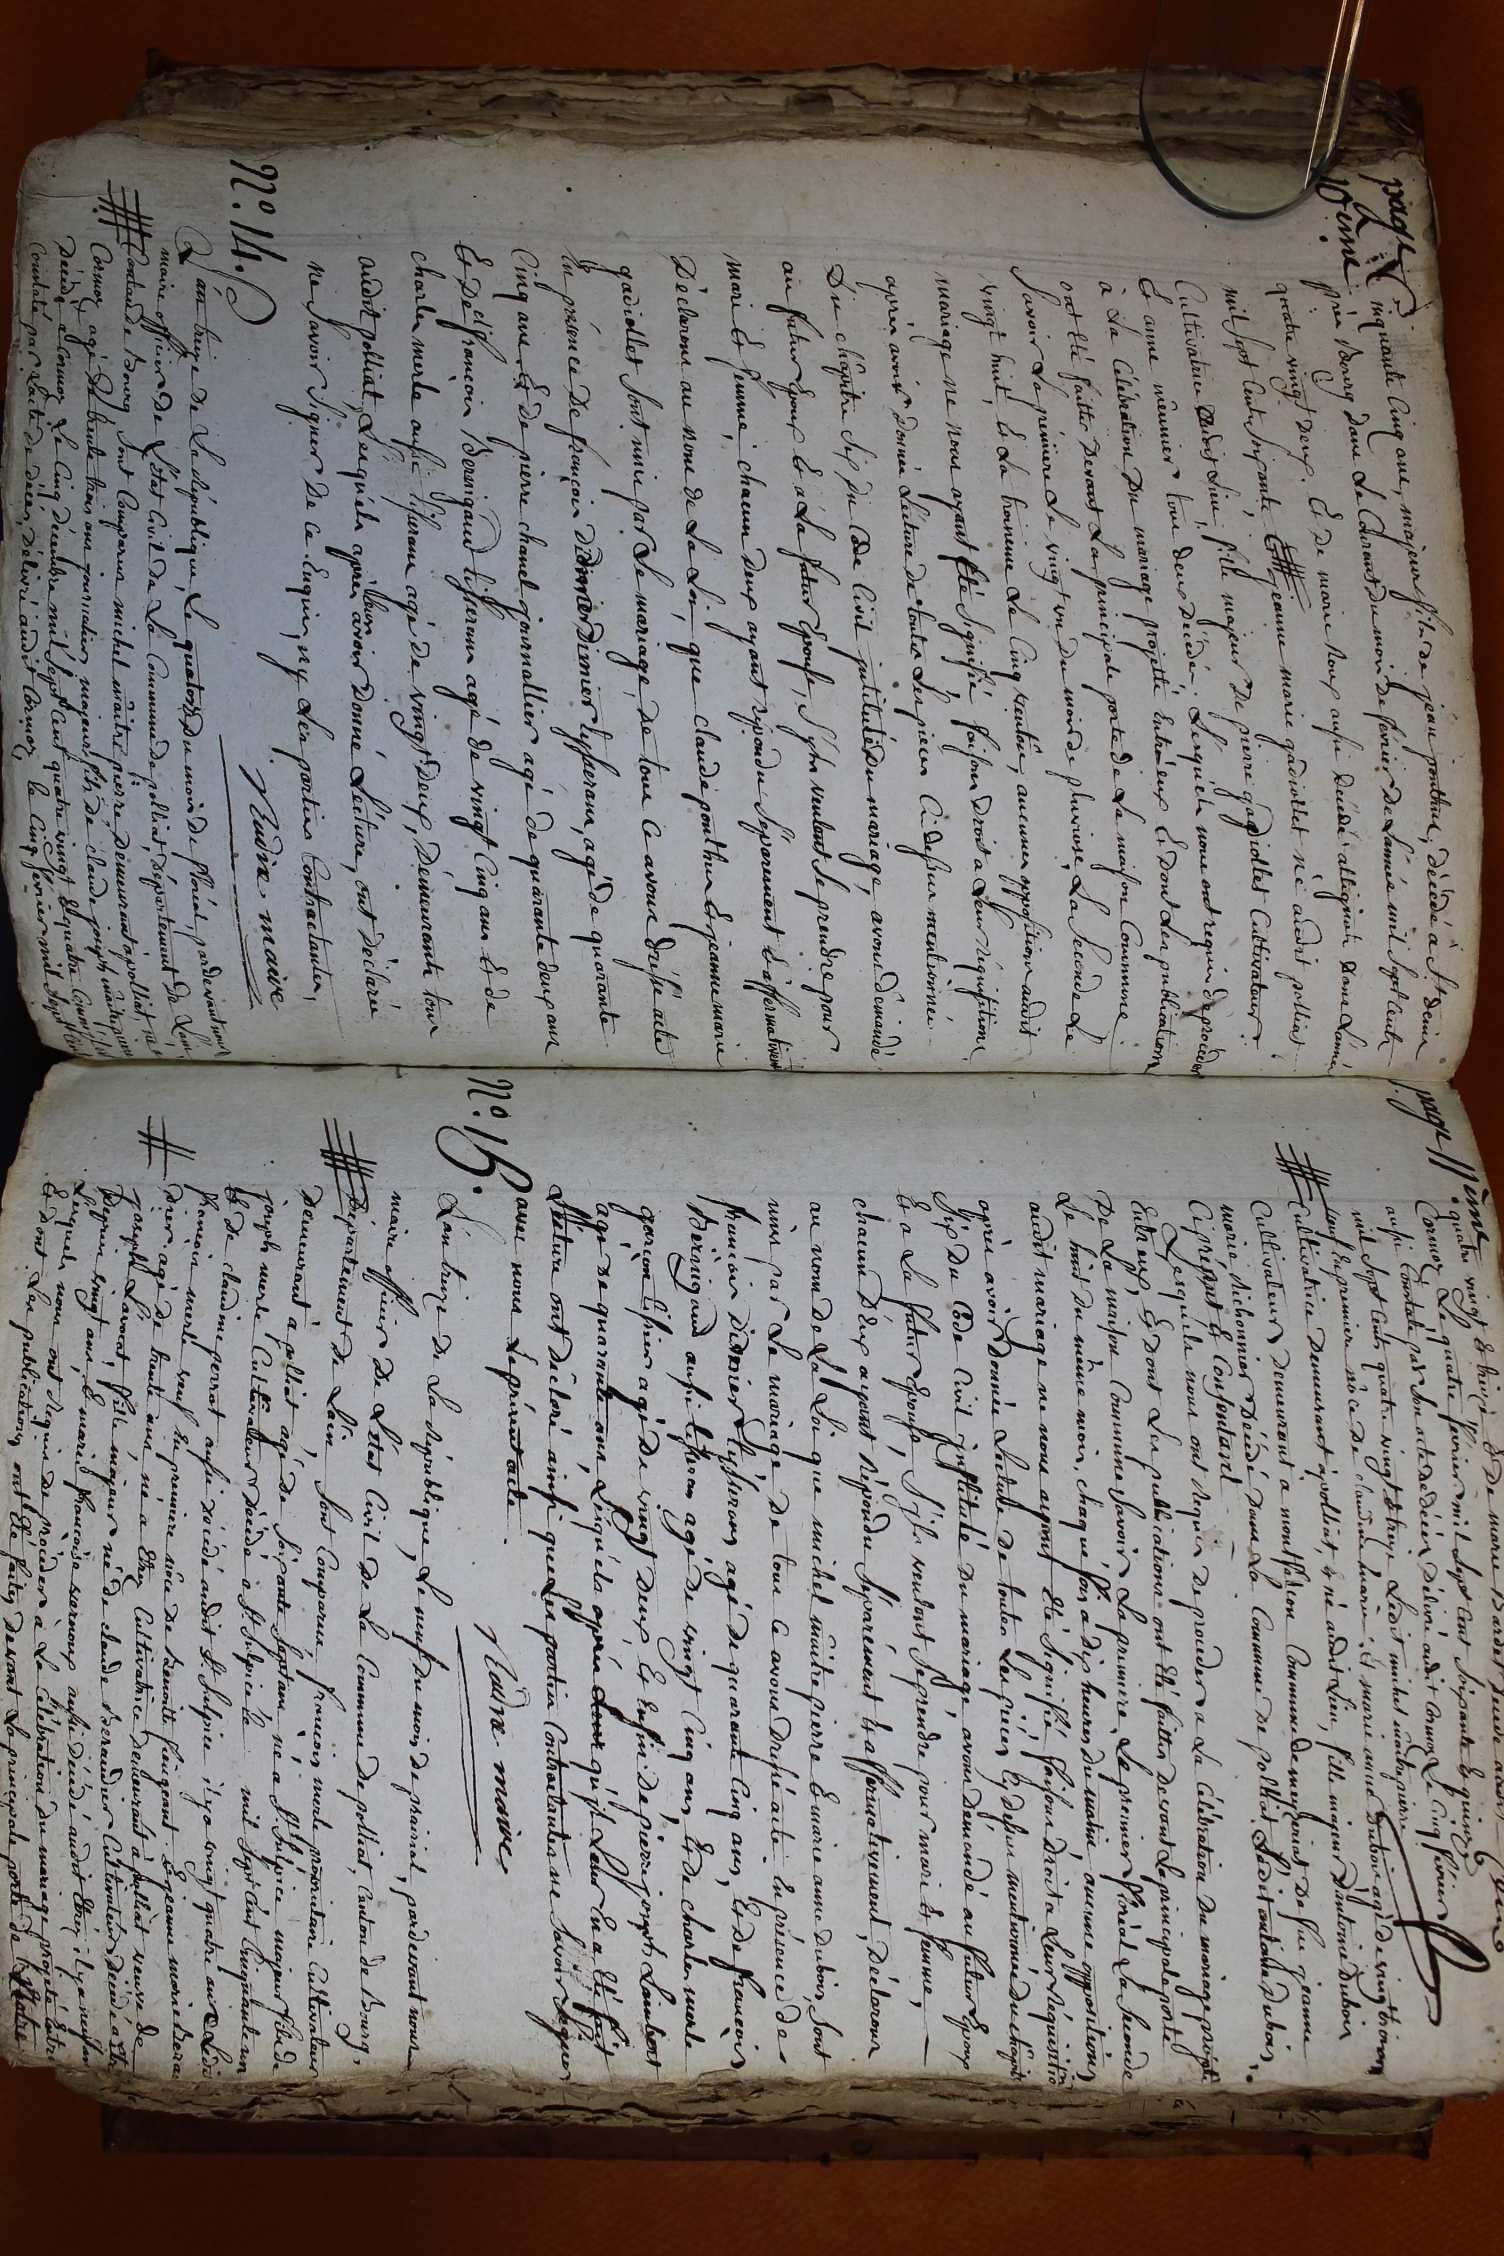 page 10eme
cinquante cinq ans, majeur fils de jean ponthus, décédé à St denis
près Bourg dans le Courant du mois de fevrier de L'année mil Sept Cents
quatre vingt deux. Et de marie roux aussi décédé allignat dans L'année
mil Sept Cents Soixante Et jeanne marie gadiollet né audit polliat
Cultivatrice audit Lieu, fille majeur de pierre gadiollet Cultivateur
Et anne meunier tous deux décédé. Lesquels nous ont requis de procéder
à La Célébration du mariage projetté Entr'eux Et dont Les publications
ont Eté faittes devant La principale porte de La maison Commune
Savoir La première Le vingt un du mois de pluviose, La Seconde Le
vingt huit, Et La troisieme Le Cinq ventôse, aucunes opposition audit
mariage ne nous ayant Eté Signifié faisons droit a Leur réquisitions,
après avoir donné Lecture de toutes Les pieces Ci dessus mentionnées
Du chapitre Six du Code Civil intitulé du mariage, avons demandé
au futur Epoux Et a La future Epouse, S'ils veulent Se prendre pour
mari Et femme, chacun deux ayant répondu Séparement Et affirmativement
Déclarons au nom de La Loi, que claude ponthus Et jeanne marie
gadiollet Sont unis par Le mariage, de tous Ce avons dressé acte
En présence de françois dimier tisserans, agé de quarante
Cinq ans Et de pierre chanel journallier agé de quarante deux ans
Et de françois Berengaud tisserans agé de vingt Cinq ans Et de
charles merle aussi tisserans agé de vingt deux, Demeurants tous
audit polliat, Lesquels après Leurs avoir donné Lecture, ont déclarés
ne Savoir Signer de Ce Enquis, n'y Les parties Contractantes,
maire
N°. 14.
L'an treize de La République, Le quatorze du mois de floréal, pardevant nous
maire officier de L'état Civil de La Commune de polliat, Département de L'ain
Canton de Bourg, Sont Comparus michel maitrepierre demeurant à polliat, né à
Cormoz agé de trente trois ans journalier majeur fils de claude joseph maitrepierre
Décédé à Cormoz Le Cinq décembre mil Sept Cent quatre vingt quatre
Constaté par L'acte de décès délivré audit Cormoz Le Cinq fevrier mil Sept Cent
page 11eme
quatre vingt Et treize, Et de marie
Cormoz Le quatre fevrier mil Sept Cent Soixante Et quinze
aussi Constaté par Son acte de décès délivré audit Cormoz Le Cinq fevrier
mil Sept Cents quatre vingt Et treize Ledit michel maitrepierre
veuf En premiere nôce de claudine marie. Et marie anne Dubois agé de vingt trois ans
Cultivatrice demeurant à polliat, Et né audit Lieu, fille majeur d'antoine Dubois
Cultivateurs demeurant a Commune de De jeanne
marie Sichonnier décédé dans La Commune de polliat Ledit antoine Dubois
Ci présent Et Consentant
Lesquels nous ont requis de procéder a La Célébration du mariage projetté
Entr'eux, Et dont Les publications ont Eté faittes devant La principale porte
De La maison Commune Savoir, La premiere, Le premier floréal La Seconde
Le huit du même mois, chaque fois a dix heures du matin aucune oppositions
audit mariage ne nous ayant Eté Signifié faisons droit a Leur réquisition
après avoir donnée Lecture de toutes Les pieces Cy dessus mentionnées du chapitre
Six du Code Civil intitulé du mariage, avons demandé au futur Epoux
Et a La future Epouse, S'ils veulent Se prendre pour mari Et femme,
chacun d'eux ayant répondu Séparément Et affirmativement, Déclarons
au nom de La Loi que michel maitre pierre Et marie anne Dubois Sont
unis par Le mariage de tous Ce avons dressé acte En présence de
francois dimier tisserans agé de quarante Cinq ans, Et de francois
Bérengaud aussi tisserans agé de vingt Cinq ans, Et de charles merle
garçon tissier agé de vingt deux, Et Enfin de pierre joseph Lambert
agé de quarante ans, Lesquels après qu'il Leur En a Eté fait
Lecture ont déclaré ainsi que Les parties Contractantes ne Savoir Signer
avec nous Le présent acte.
maire
N°. 15.
L'an treize de La République, Le neuf du mois de prairial, pardevant nous
maire officier de L'état Civil de La Commune de polliat, Canton de Bourg,
Département de L'ain Sont Comparus, francois merle propriétaire Cultivateur
Demeurant à polliat agé de Soixante Sept ans né a St Sulpice, majeur fils de
joseph merle Cultivateur décédé a St Sulpice Le mil Sept Cent Cinquante un
Et De claudine perrat aussi décédé audit St Sulpice il y a vingt quatre ans Ledit
francois merle veuf En premiere nôce de Benoitte Et jeanne marie Berau-
dier agé de trente ans né a Etrez Cultivatrice demeurant à polliat veuve de
joseph Lavocat, fille majeur né de claude Beraudier Cultivateur décédé a Etrez
Depuis vingt ans, Et marie françoise vernoux aussi décédé audit Etrez il y a neuf ans
Lesquels nous ont requis de procéder a La Célébration du mariage projetté Entre
Et dont Les publications ont Eté faites devant La principale porte de Nôtre